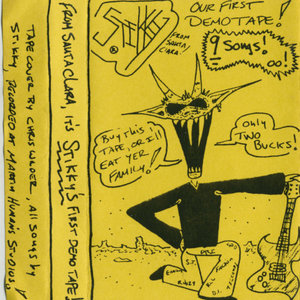 TAPE COVER BY CHRIS WILDER ALL SONGS by
STIKKY, RECORDED AT MARTIN HUMAN'S STUDIOS,
FROM SANTA CLARA, IT'S STIKKY'S FIRST DEMO TAPE!
STIKKY
FROM
SANTA
CLARA.
OUR FIRST
DEMO TAPE!
9 SONGS!
Buy this
TAPE, OR I'll
EAT YER
FAMILY!
Only
TWO
BUCKS!